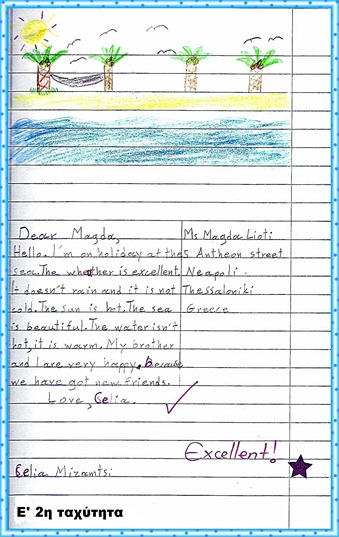 Dear Magda,
Hello. I'm on holiday at the
sea. The whether is excellent.
It doesn't rain and it is not
cold. The sun is hot. The sea
is beautiful. The water isn't
hot, it is warm. My brother
and I are very happy, because
we have got new friends.
Love, Celia.
Ms Magda Lioti
5 Antheon street
Neapoli.
Thessaloniki
Greece
Excellent!
Celia Mizamtsi
Ε' 2η ταχύτητα